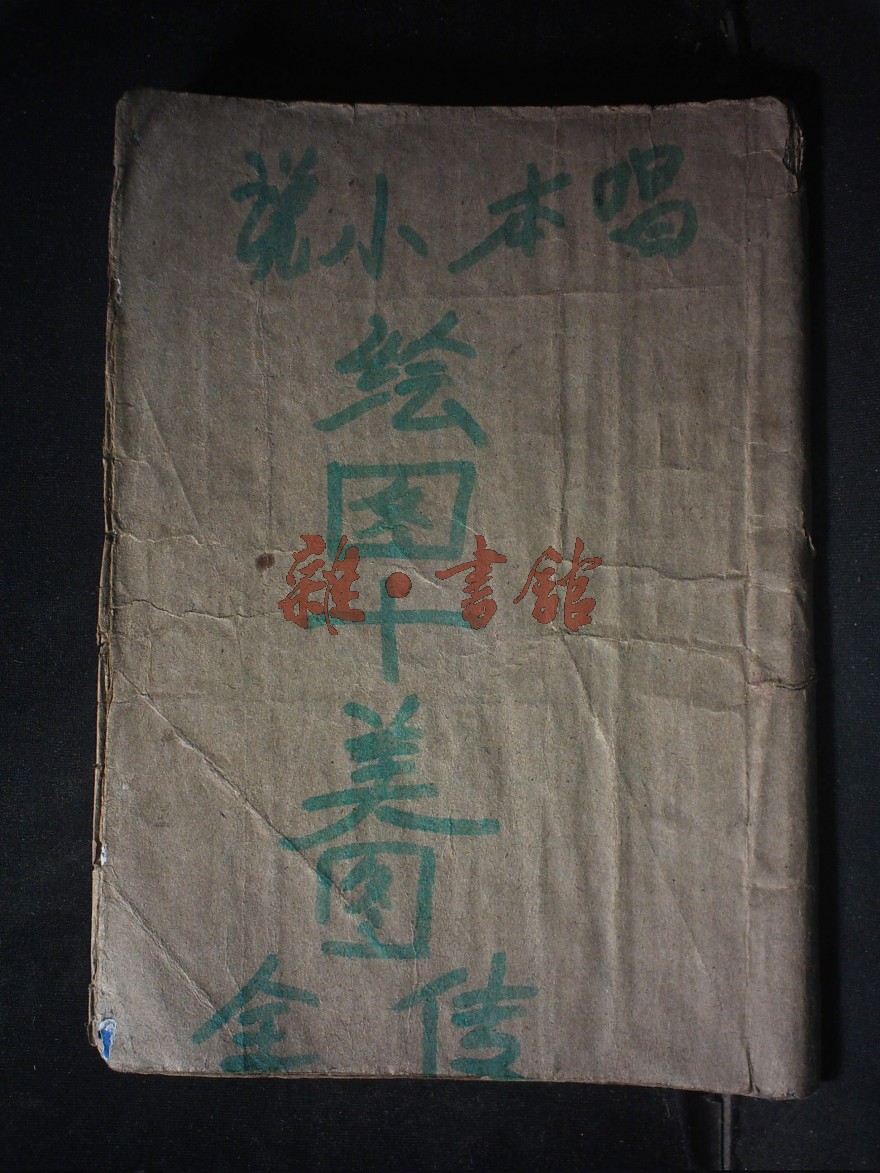 唱本小说
绘图十美图
全传
雜·書館